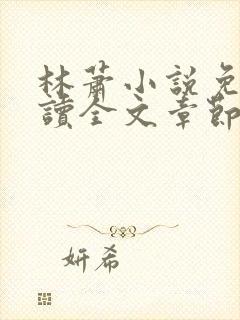 林蕭小説免
讀全文章節
妍希